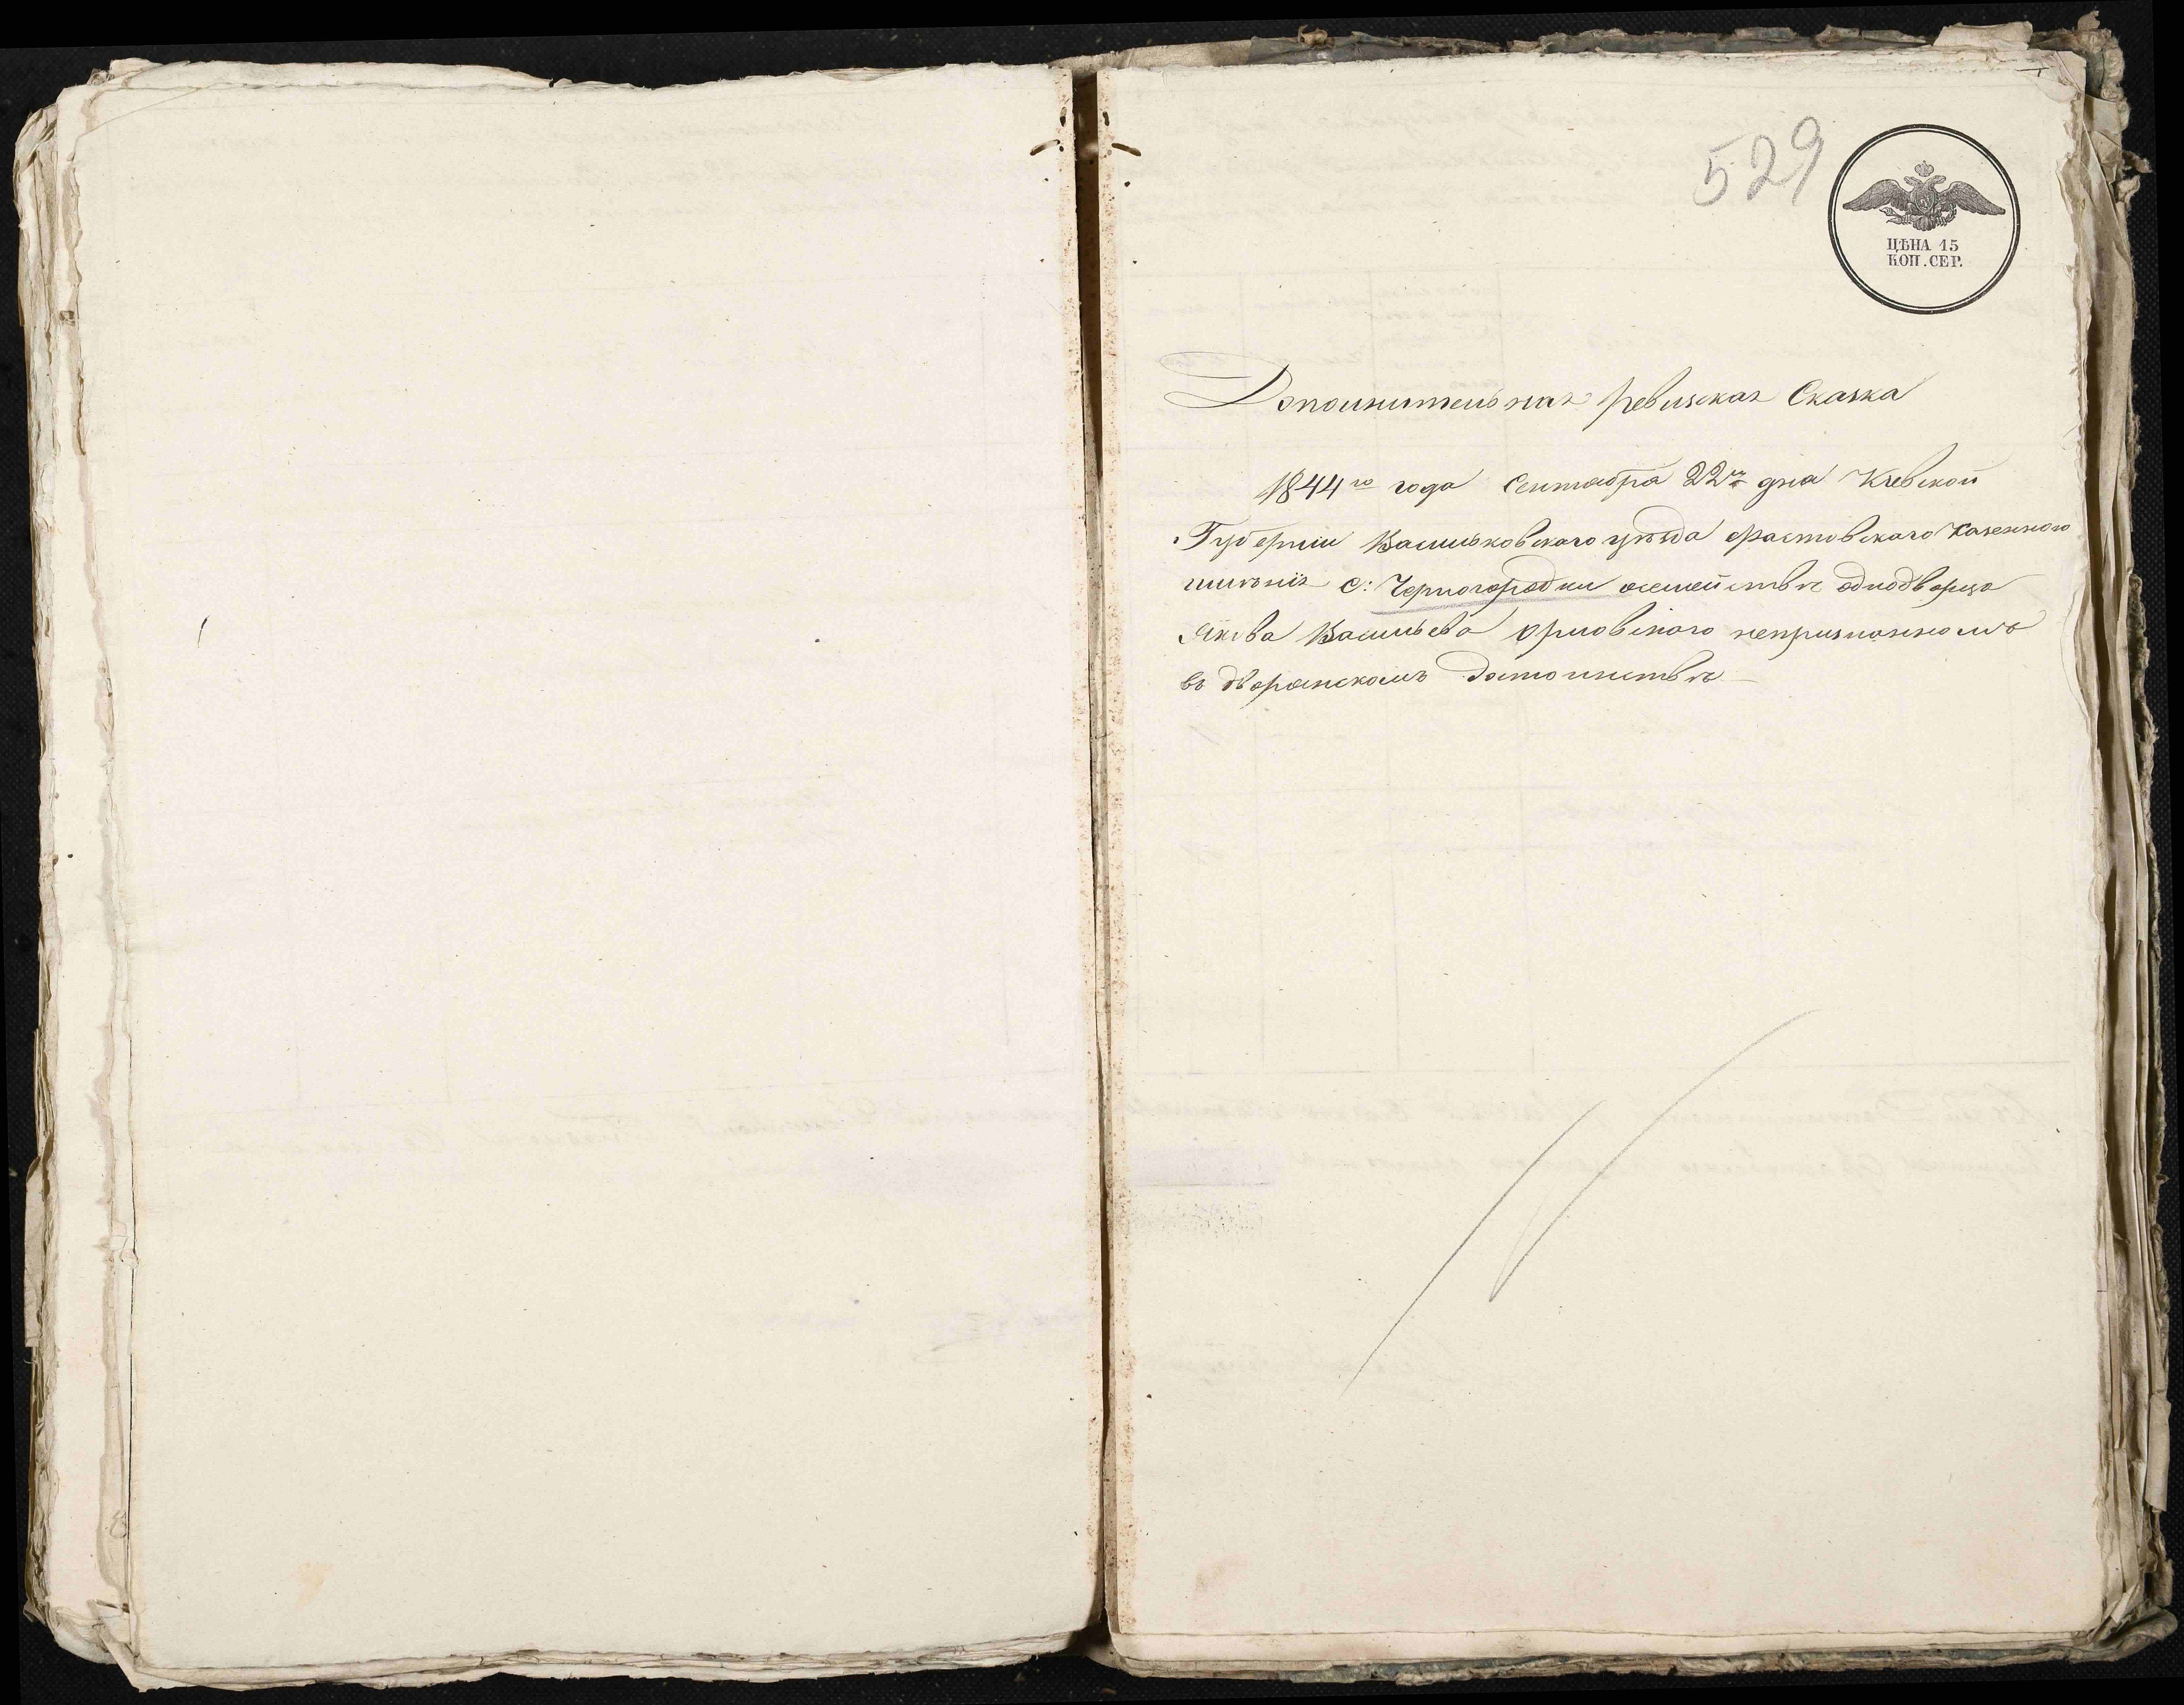 529
ЦѢНА 15
КОП. СЕР.
Дополнительная ревизская Сказка
1844го года Сентября 22го дня Кіевской
Губерніи Васильковскаго уѣзда Фастовскаго Казеннаго
имѣнія с: Черногородки о семействѣ однодворца
Якова Васильева Орловскаго непризнанномъ
въ дворянскомъ достоинствѣ